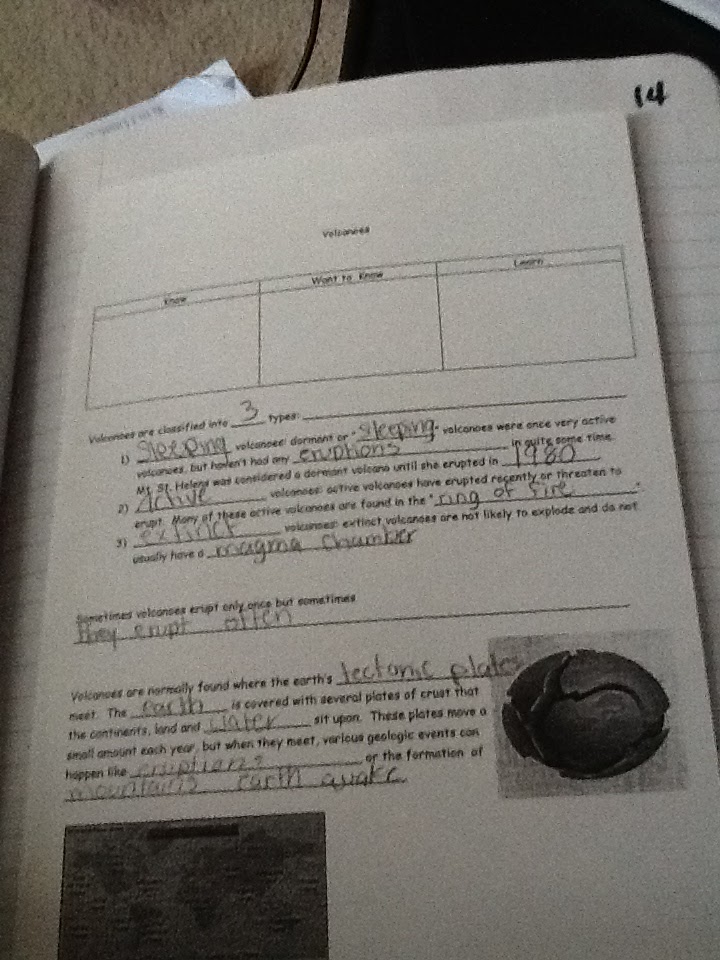 14
Volcanoes
Know Want to Know Learn
Volcanoes are classified into 3 types:
1) Sleeping volcanoes: dormant or "sleeping" volcanoes were once very active
volcanoes, but haven't had any eruptions in quite some time.
Mt. St. Helens was considered a dormant volcano until she erupted in 1980
2) Active volcanoes: active volcanoes have erupted recently or threaten to
erupt. Many of these active volcanoes are found in the "ring of fire".
3) extinct volcanoes: extinct volcanoes are not likely to explode and do not
usually have a magma chumber
Sometimes volcanoes erupt only once but sometimes
they erupt often
Volcanoes are normally found where the earth's tectonic plates
meet. The earth is covered with several plates of crust that
the continents, land and water sit upon. These plates move a
small amount each year, but when they meet, various geologic events can
happen like eruptions or the formation of
mountains earth quake